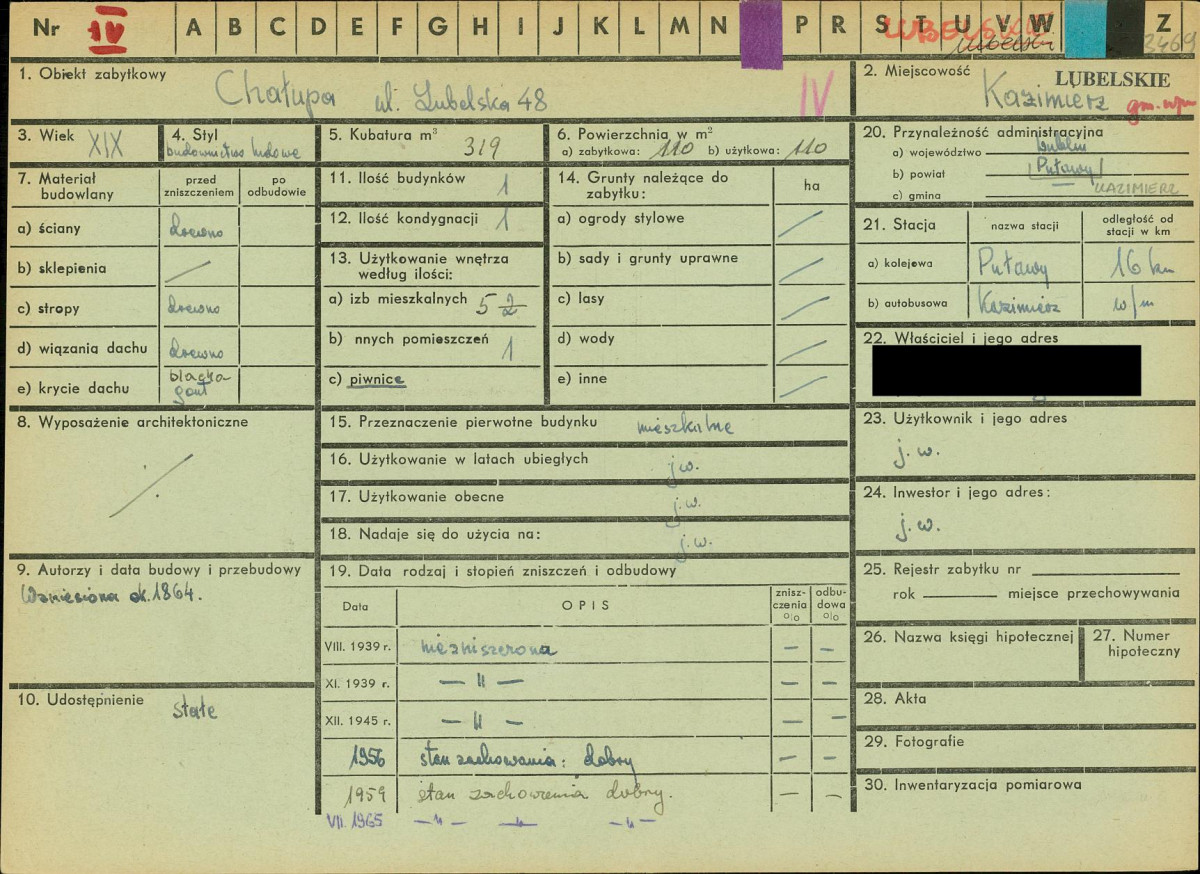 Nr IV A B C D E F G H I J K L M N P R S T U V W Z
LUBELSKIE
lubelski
3469
1. Obiekt zabytkowy
Chałupa ul. Lubelska 48
IV
2. Miejscowość
LUBELSKIE
Kazimierz
3. Wiek XIX
4. Styl
budownictwo ludowe
5. Kubatura m³ 319
6. Powierzchnia w m²
a) zabytkowa: 110 b) użytkowa: 110
7. Materiał budowlany
przed zniszczeniem
po odbudowie
a) ściany drewno
b) sklepienia /
c) stropy drewno
d) wiązania dachu drewno
e) krycie dachu blacha
gont
11. Ilość budynków 1
12. Ilość kondygnacji 1
13. Użytkowanie wnętrza
według ilości:
a) izb mieszkalnych 5 2
b) nnych pomieszczeń 1
c) piwnice
14. Grunty należące do
zabytku:
ha
a) ogrody stylowe /
b) sady i grunty uprawne /
c) lasy /
d) wody /
e) inne /
20. Przynależność administracyjna
a) województwo Lublin
b) powiat Puławy
c) gmina KAZIMIERZ
21. Stacja
nazwa stacji
odległość od
stacji w km
a) kolejowa Puławy 16 km
b) autobusowa Kazimierz w/m
22. Właściciel i jego adres
8. Wyposażenie architektoniczne
15. Przeznaczenie pierwotne budynku mieszkalne
16. Użytkowanie w latach ubiegłych j.w.
17. Użytkowanie obecne j.w.
18. Nadaje się do użycia na: j.w.
23. Użytkownik i jego adres
j. w.
24. Inwestor i jego adres:
j. w.
9. Autorzy i data budowy i przebudowy
Wzniesiona ok. 1864.
10. Udostępnienie
stałe
19. Data rodzaj i stopień zniszczeń i odbudowy
Data
OPIS
znisz-
czenia
o/o
odbu-
dowa
o/o
VIII. 1939 r. niezniszczona — —
XI. 1939 r. — " — — —
XII. 1945 r. — " — — —
1956 stan zachowania: dobry — —
1959 stan zachowania dobry. — —
VII. 1965 —"— —"— —"—
25. Rejestr zabytku nr
rok miejsce przechowywania
26. Nazwa księgi hipotecznej
27. Numer
hipoteczny
28. Akta
29. Fotografie
30. Inwentaryzacja pomiarowa